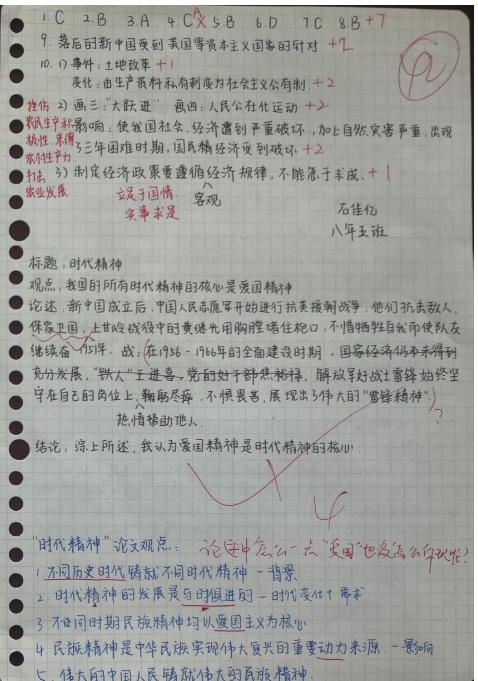 1. C 2. B 3. A 4. C A 5. B 6. D 7 C 8. B +7
9. 落后的新中国受到 美国等资本主义国家的针对 +2
10. 1) 事件：土地改革 +1
变化：由生产资料私有制变为社会主义公有制 +2
2) 画三："大跃进" 画四：人民公社化运动 +2
挫伤
农民生产积
极性，束缚
农村生产力
打击
农业发展
影响：使我国社会、经济遭到严重破坏，加上自然灾害严重，出现
了三年困难时期，国民经济受到破坏 +2
3) 制定经济政策要遵循经济规律，不能急于求成。+1
立足于国情 客观
实事求是
石佳亿
八年五班
标题：时代精神
观点：我国的所有时代精神的核心是爱国精神
论述：新中国成立后，中国人民志愿军开始进行抗美援朝战争，他们抗击敌人，
保家卫国，上甘岭战役中的黄继光用胸膛堵住枪口，不惜牺牲自我而使队友
继续奋 战，在1956-1966年的全面建设时期，国家经济仍未得到
充分发展，"铁人"王进喜，党的好干部焦裕禄，解放军好战士雷锋始终坚
守在自己的岗位上，鞠躬尽瘁，不惧畏害，展现出了伟大的"雷锋精神" ?
热情帮助他人
结论：综上所述，我认为爱国精神是时代精神的核心
4
"时代精神"论文观点： 论述中怎么一点"爱国"也没怎么体现呢?
1. 不同历史时代铸就不同时代精神 - 背景
2. 时代精神的发展是与时俱进的 - 时代变化+需求
3 不同时期民族精神均以爱国主义为核心
4 民族精神是中华民族实现伟大复兴的重要动力来源. - 影响
5. 伟大的中国人民铸就伟大的民族精神.